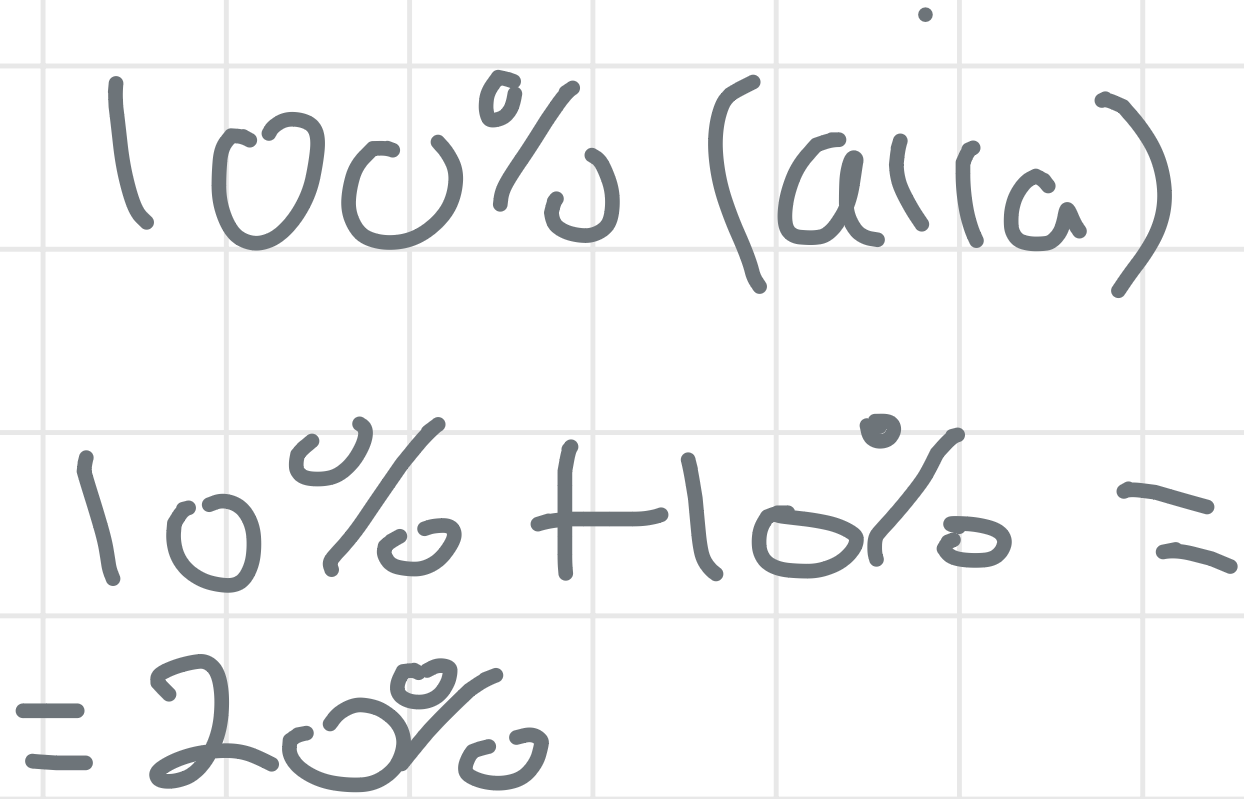 100% (alla)
10% + 10% =
= 20%